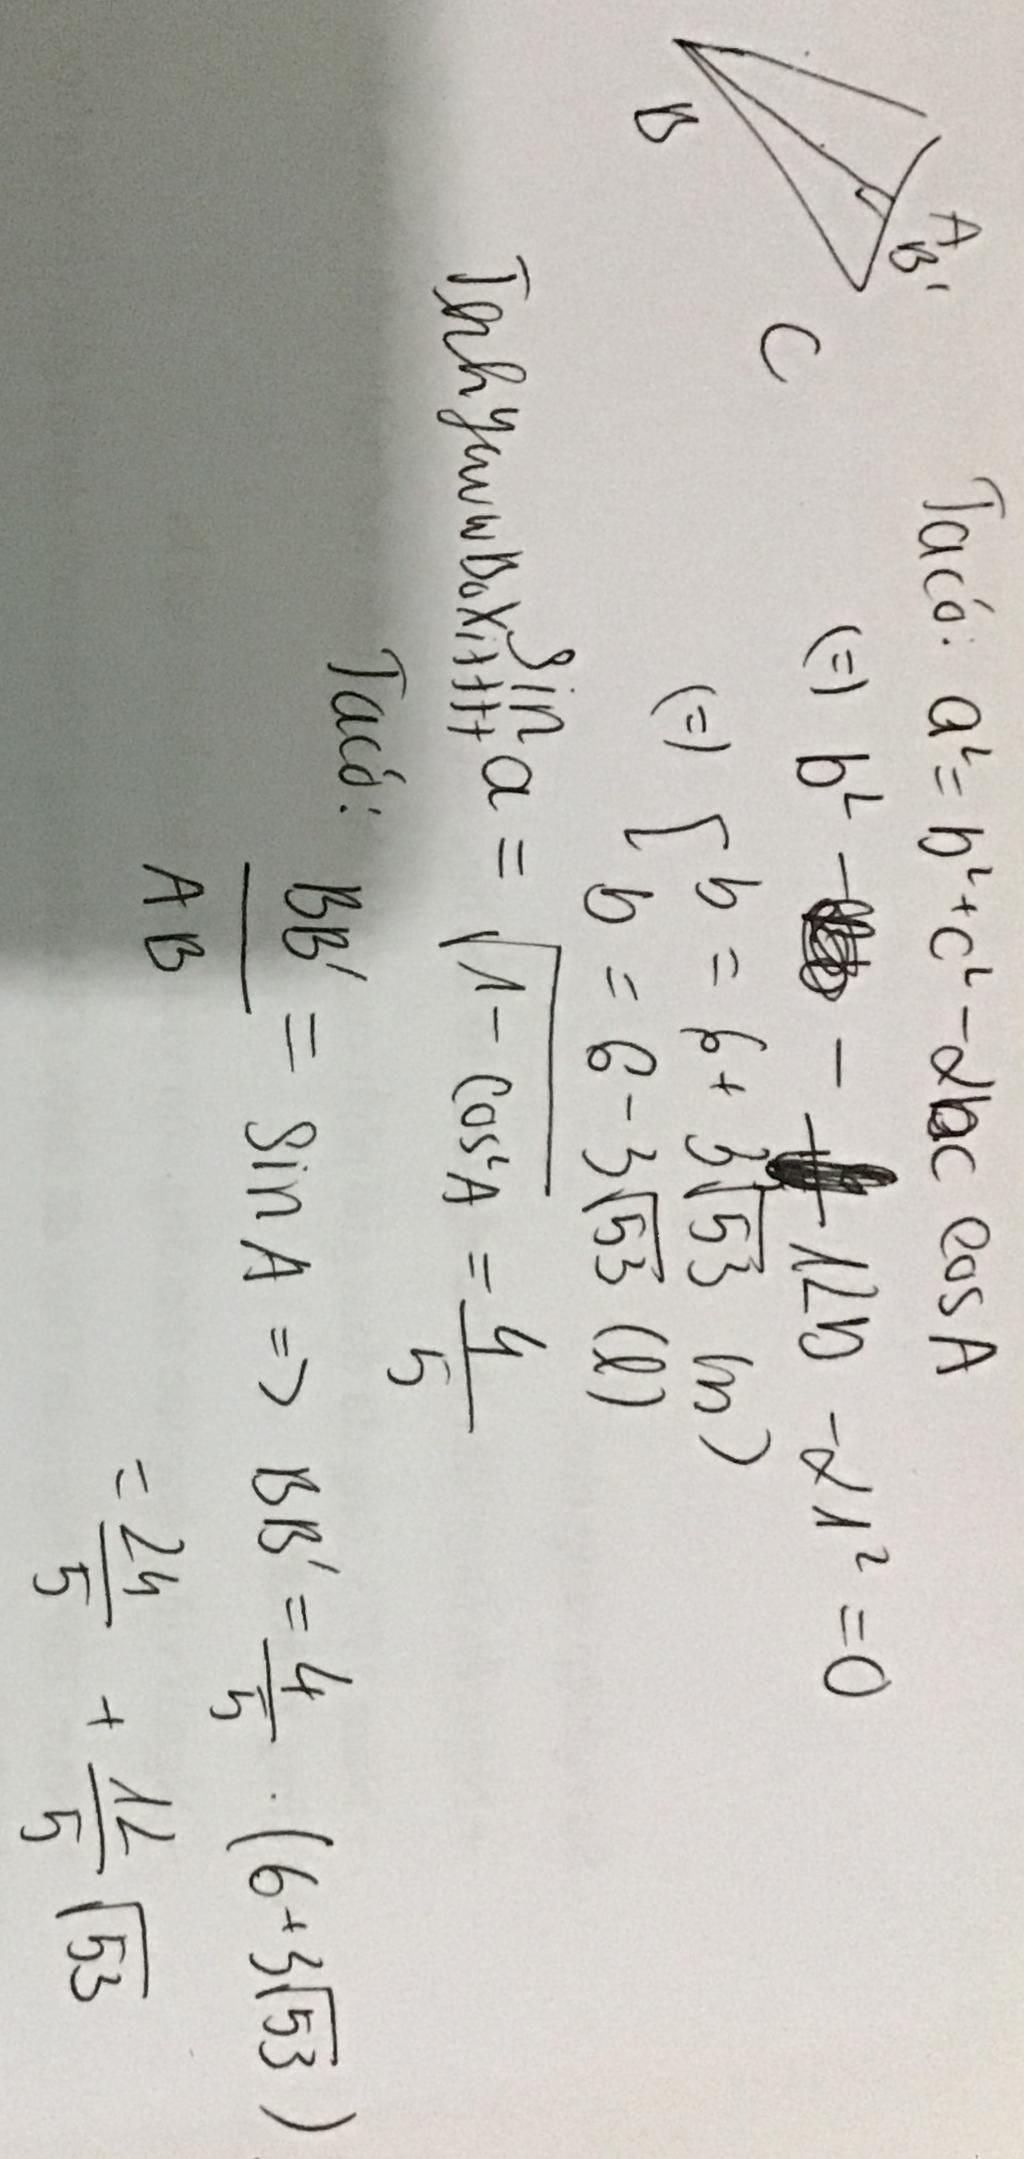 A
B'
B
C
Ta có: a² = b² + c² - 2bc cos A
(=) b² - - 12b - 21² = 0
(=) [ b = 6 + 3√53 (n)
b = 6 - 3√53 (l)
Sin a = √1 - cos²A = 4/5
Ta có: BB'/AB = Sin A => BB' = 4/5 . (6 + 3√53)
= 24/5 + 12/5 √53